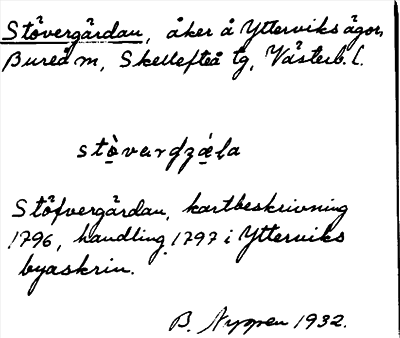 Stövergärdan, åker å Ytterviks ägor,
Bureå m, Skellefteå tg, Västerb. l.
stò̱vardzá̱la
Stöfvergärdan, kartbeskrivning
1796, handling 1797 i Ytterviks
byaskrin.
B. Nyppen 1932.